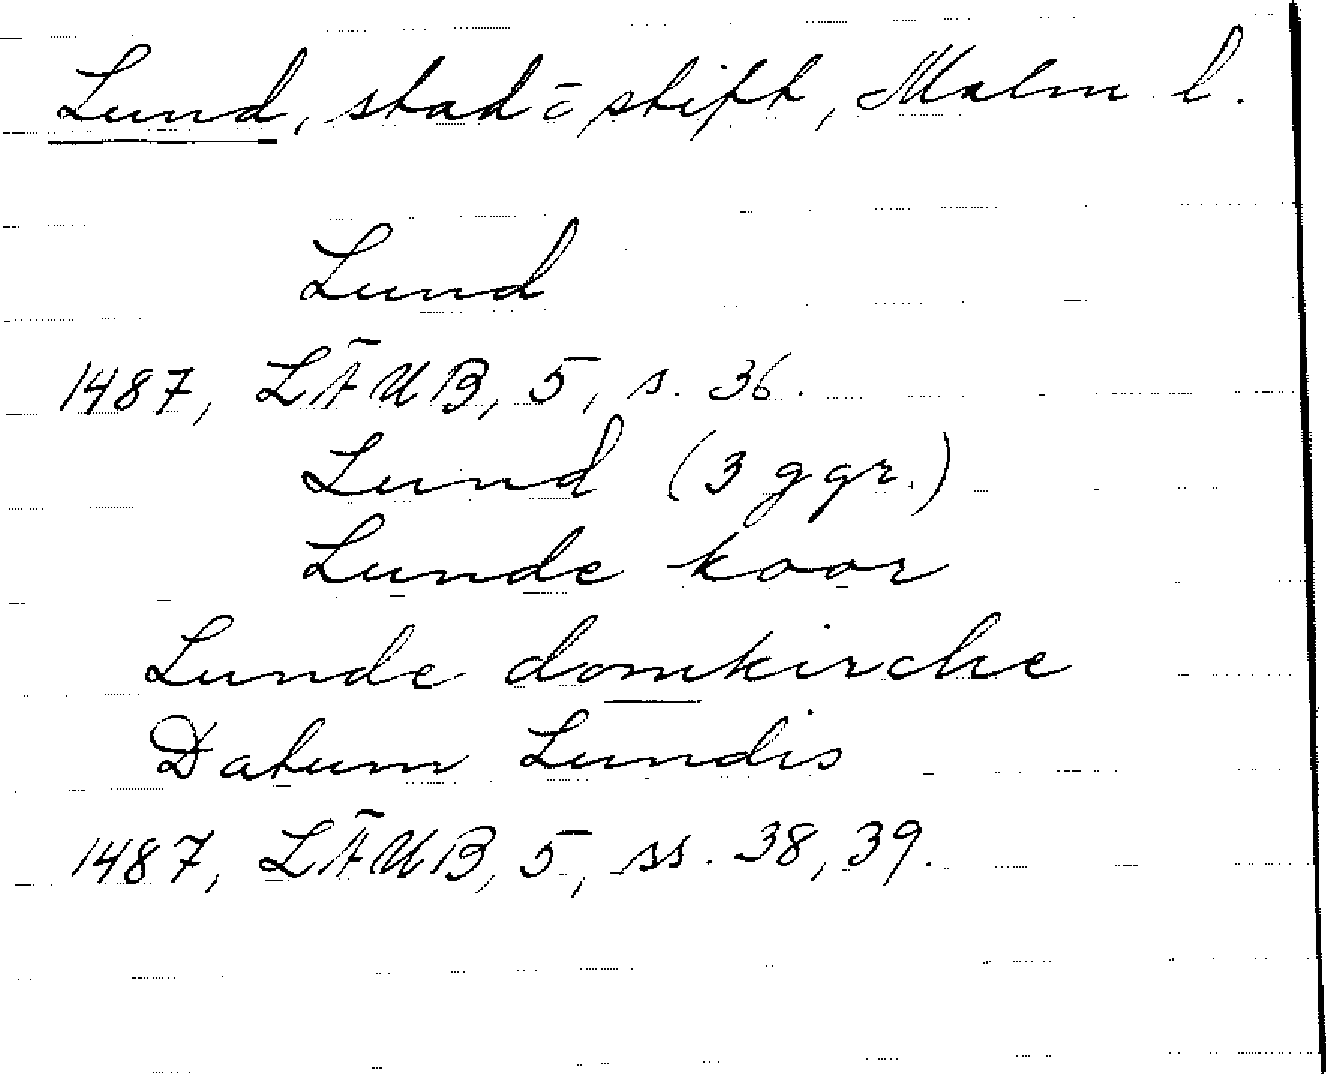 Lund, stad o stift, Malm l.
Lund
1487, LÄUB, 5, s. 36.
Lund (3 ggr.)
Lunde koor
Lunde domkirche
Datum Lundis
1487, LÄUB, 5, ss. 38, 39.